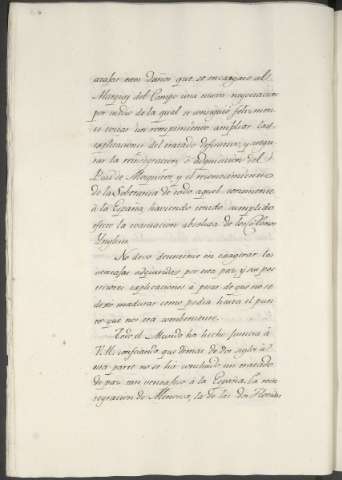 atajar esos daños que se encargase al
Marques del Campo una nueva negociacion
por medio de la qual se consiguió felizmen-
te evitar un rompimiento, ampliar las
explicaciones del tratado definitivo, y asegu-
rar la
Pais de Mosquitos y el reconocimiento
de la Soberania de todo aquel continente
á la España, haviendo tenido cumplido
efecto la evacuacion absoluta de los Colonos
Yngleses.
No devo detenerme en exagerar las
ventajas adquiridas por esta paz y sus pos-
teriores explicaciones á pesar de que no se
dexó madurar como pedia hasta el pun-
to que nos era combeniente.
Todo el Mundo ha hecho justicia á
V. M. confesando que demas de dos siglos á es-
ta parte no se ha concluido un tratado
de paz tan ventajoso á la España. La rein-
tegracion de Menorca, la de las dos Floridas